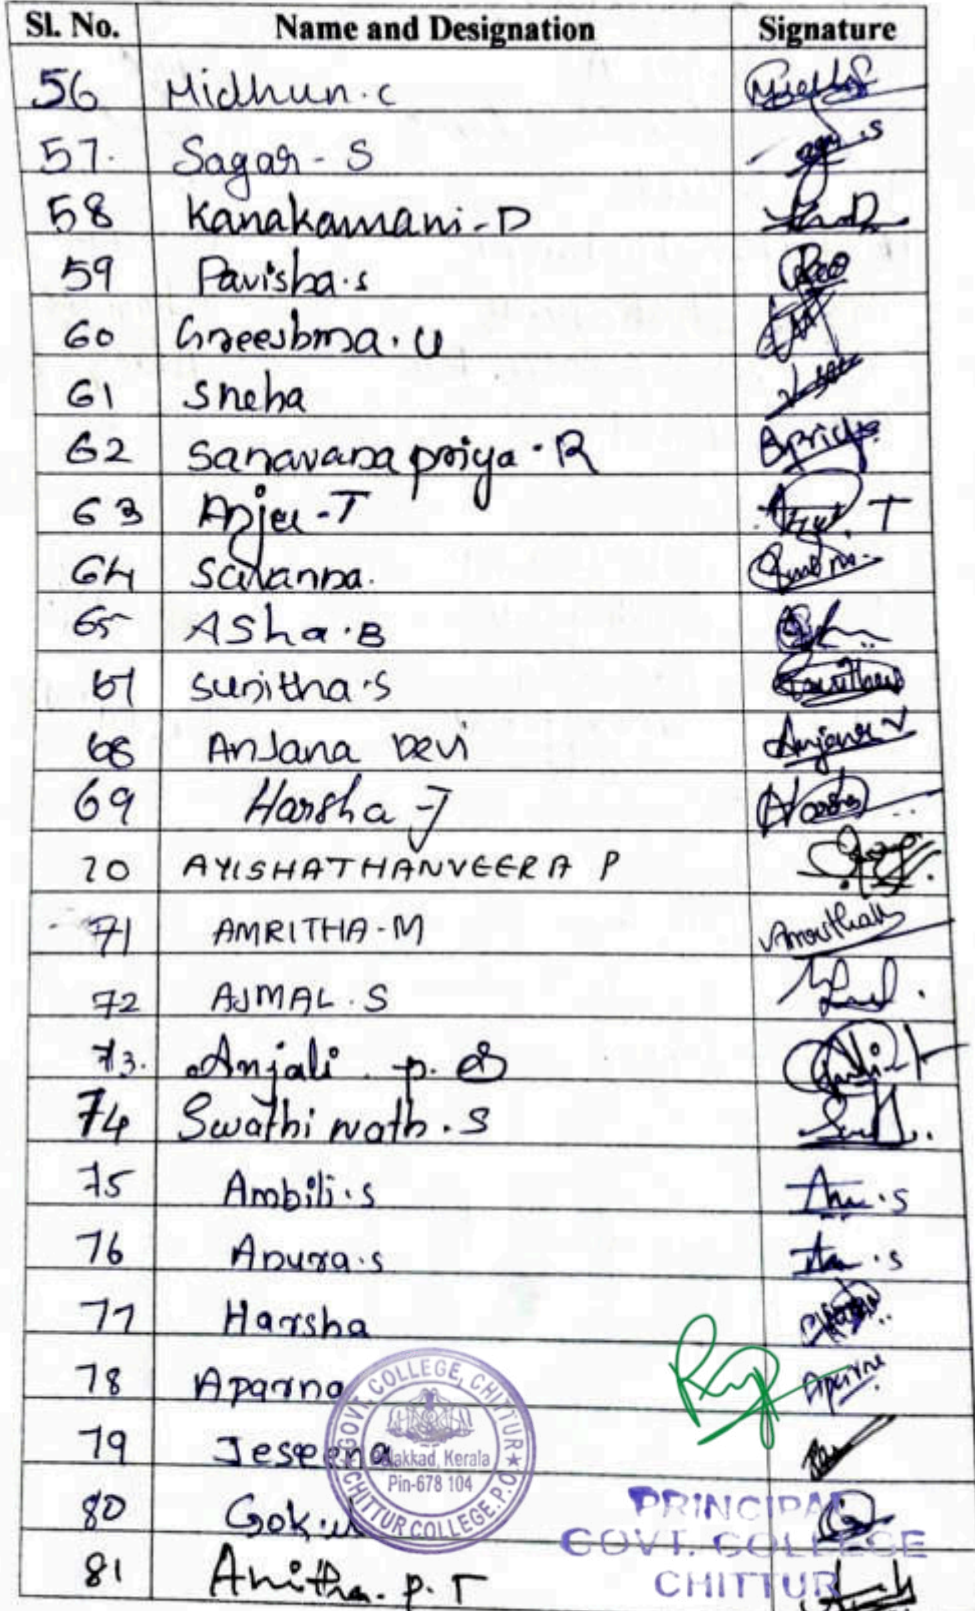 Sl. No. Name and Designation Signature
56 Midhun.c
57. Sagar - S .S
58 Kanakamani-D
59 Pavisha.s
60 Greeshma.U
61 Sneha
62 Saravanapriya.R Bpriya
63 Anju-T T
64
65 ASha.B
67 Sunitha.S Sunitha
68 AnJana Devi Anjana
69 Harsha J Harsha
70 AYISHATHANVEERA P
71 AMRITHA-M Amritha
72 AJMAL.S
73. Anjali. p.
74 Swathi nath.S
75 Ambili.s .S
76 .s .s
77 Harsha
78 Aparna Aparna
79 Jeseena
80
81 Anitha.p.T
GOVT. COLLEGE, CHITTUR
akkad, Kerala
Pin-678 104
CHITTUR COLLEGE.P.O.
PRINCIPAL
GOVT. COLLEGE
CHITTUR